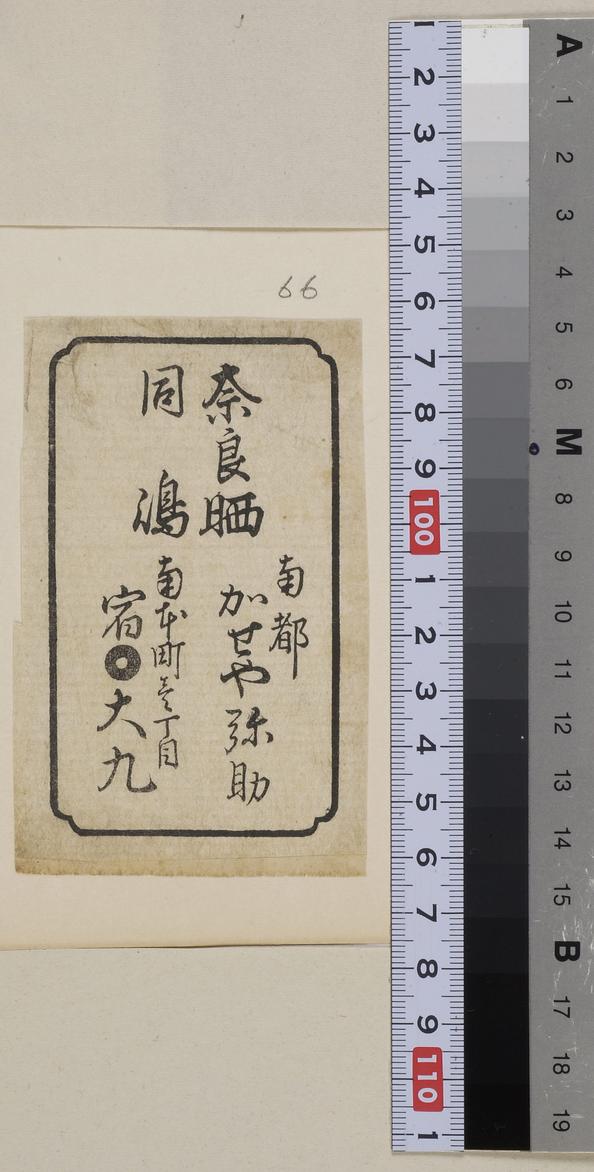 66
奈良晒
同嶋
南都
加せや弥助
南本町壱丁目
宿 大九
1 2 3 4 5 6 7 8 9 100 1 2 3 4 5 6 7 8 9 110 1
A 1 2 3 4 5 6 M 8 9 10 11 12 13 14 15 B 17 18 19